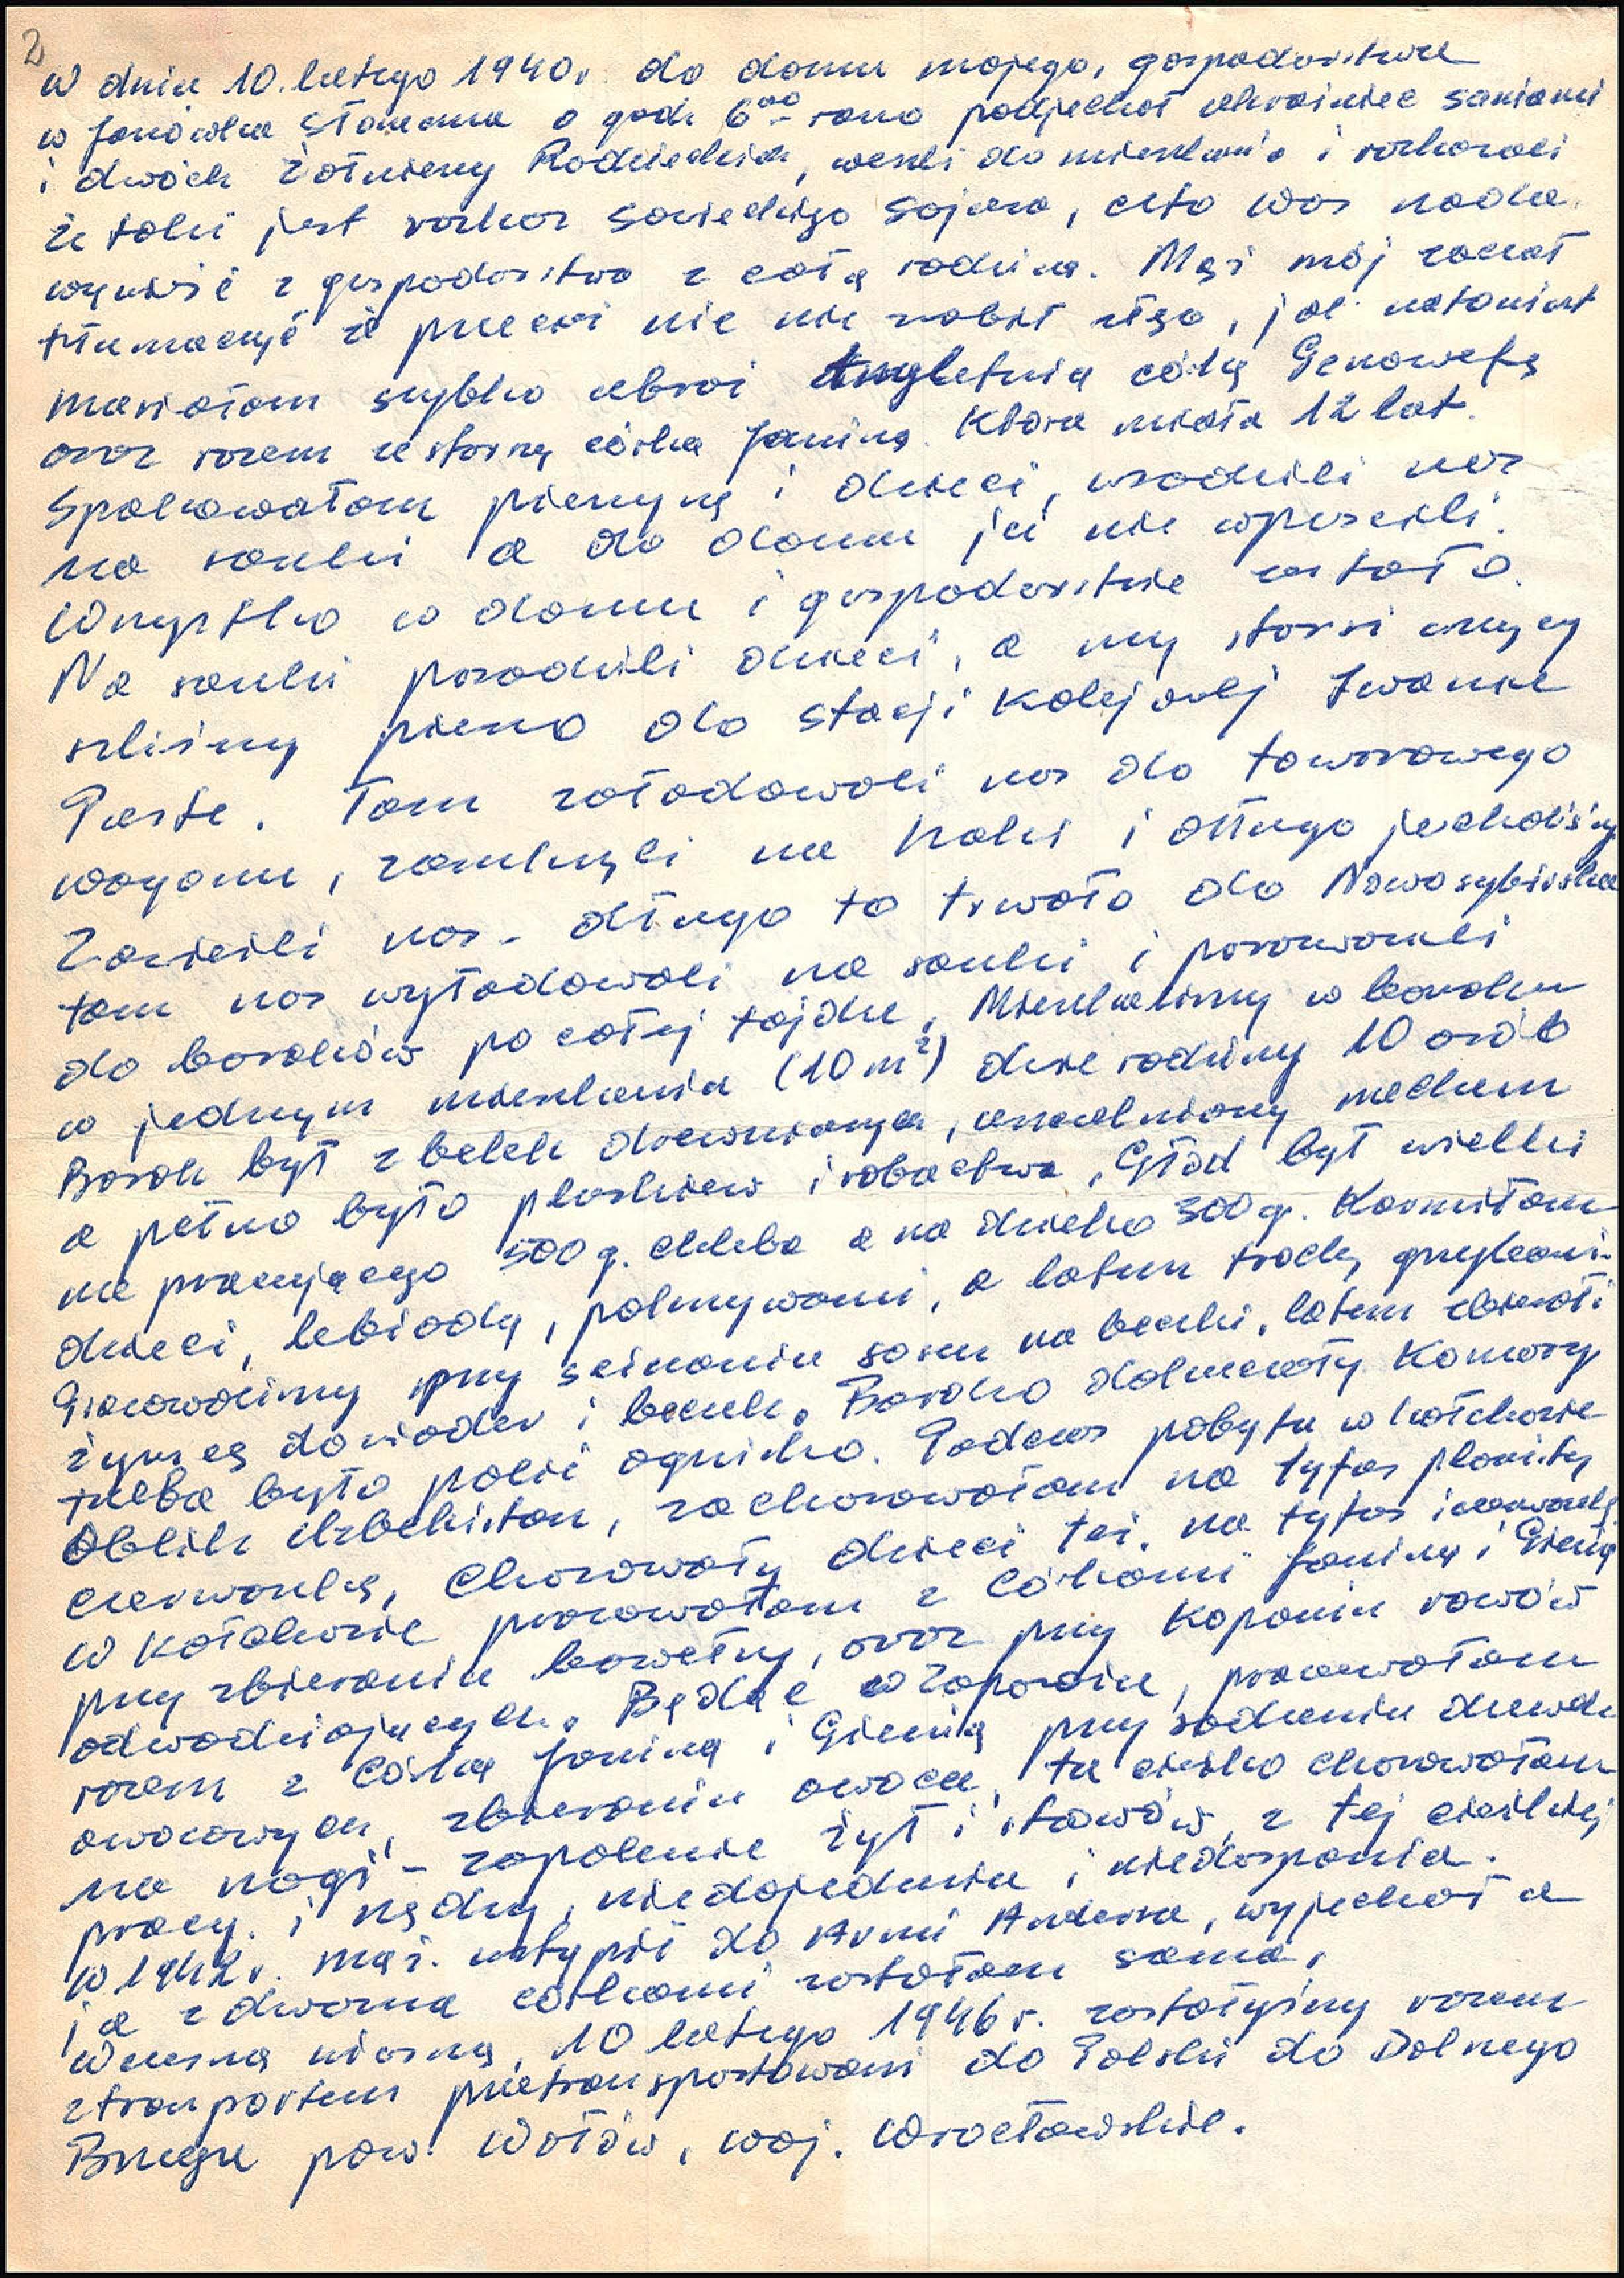 2
W dniu 10. lutego 1940r. do domu mojego, gospodarstwa
w Janówka o godz 6⁰⁰ rano podjechał ukrainiec saniami
i dwóch żołnierzy Radzieckich, weszli do mieszkania i rozkazali
że taki jest rozkaz Sowieckiego Sojuza, czto was nada
wywieść z gospodarstwa z całą rodziną. Mąż mój zaczął
tłumaczyć że przecież nic nie zrobił złego, ja natomiast
musiałam szybko ubrać letnią córkę Genowefę
oraz razem ze starszą córką Janiną. Która miała 12 lat.
Spakowałam pierzynę i dzieci, wsadzili nas
na sanki a do domu już nie wpuścili.
Wszystko w domu i gospodarstwie zostało.
Na sanki posadzili dzieci, a my starsi wszyscy
szliśmy pieszo do stacji Kolejowej Iwanie
Puste. Tam załadowali nas do towarowego
wagonu, zamknęli na haki i długo jechaliśmy
Zawieźli nas - długo to trwało do Nowosybirska
tam nas wyładowali na sanki i porozwozili
do baraków po całej tajdze. Mieszkaliśmy w baraku
w jednym mieszkaniu (10 m²) dwie rodziny 10 osób
Barak był z belek drewnianych, uszczelniony mechem
a pełno było pluskiew i robactwa. Głód był wielki
na pracującego 500 g. chleba a na dziecko 300 g. Karmiłam
dzieci, lebiodą, pokrzywami, a latem trochę grzybami.
Pracowaliśmy przy ścinaniu sosen na beczki, latem zbierali
żywicę do wiader i beczek. Bardzo dokuczały Komary
trzeba było palić ognisko. Podczas pobytu w kołchozie
Oblik Uzbekistan, zachorowałam na tyfus plamisty
czerwonkę, Chorowały dzieci też. na tyfus i czerwonkę.
W kołchozie pracowałam z Córkami Janiną i Gienią
przy zbieraniu bawełny, oraz przy Kopaniu rowów
odwadniających. Będąc w , pracowałam
razem z Córką Janiną i Gienią przy sadzeniu drzewek
owocowych, zbieraniu owoców, tu ciężko chorowałam
na nogi - zapalenie żył i stawów, z tej ciężkiej
pracy. i nędzy, niedojedzenia i niedospania.
W 1942r. mąż. wstąpił do Armi Andersa, wyjechał a
ja z dwoma córkami zostałam sama.
Wczesną wiosną, 10 lutego 1946 r. zostałyśmy razem
z transportem przetransportowani do Polski do Dolnego
Brzegu pow. Wołów, woj. Wrocławskie.